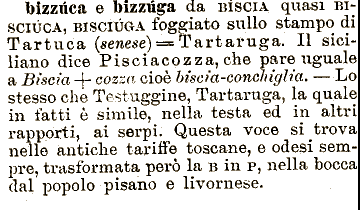 bizzúca e bizzúga da BÍSCIA quasi BI-
SCIÚCA, BISCIÚGA foggiato sullo stampo di
Tartuca (senese) = Tartaruga. Il sici-
liano dice Pisciacozza, che pare uguale
a Biscia + cozza cioè biscia-conchiglia. — Lo
stesso che Testuggine, Tartaruga, la quale
in fatti è simile, nella testa ed in altri
rapporti, ai serpi. Questa voce si trova
nelle antiche tariffe toscane, e odesi sem-
pre, trasformata però la B in P, nella bocca
dal popolo pisano e livornese.